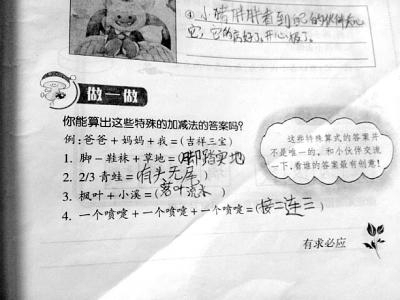 ④小猪胖胖看到自己的伙伴关心
它，它的病好了，开心极了。
做一做
你能算出这些特殊的加减法的答案吗？
例：爸爸＋妈妈＋我＝（吉祥三宝）
1. 脚－鞋袜＋草地＝（脚踏实地）
2. 2/3 青蛙＝（有头无尾）
3. 枫叶＋小溪＝（落叶流水）
4. 一个喷嚏＋一个喷嚏＋一个喷嚏＝（接二连三）
这些特殊算式的答案并
不是唯一的。和小伙伴交流
一下，看谁的答案最有创意！
有求必应